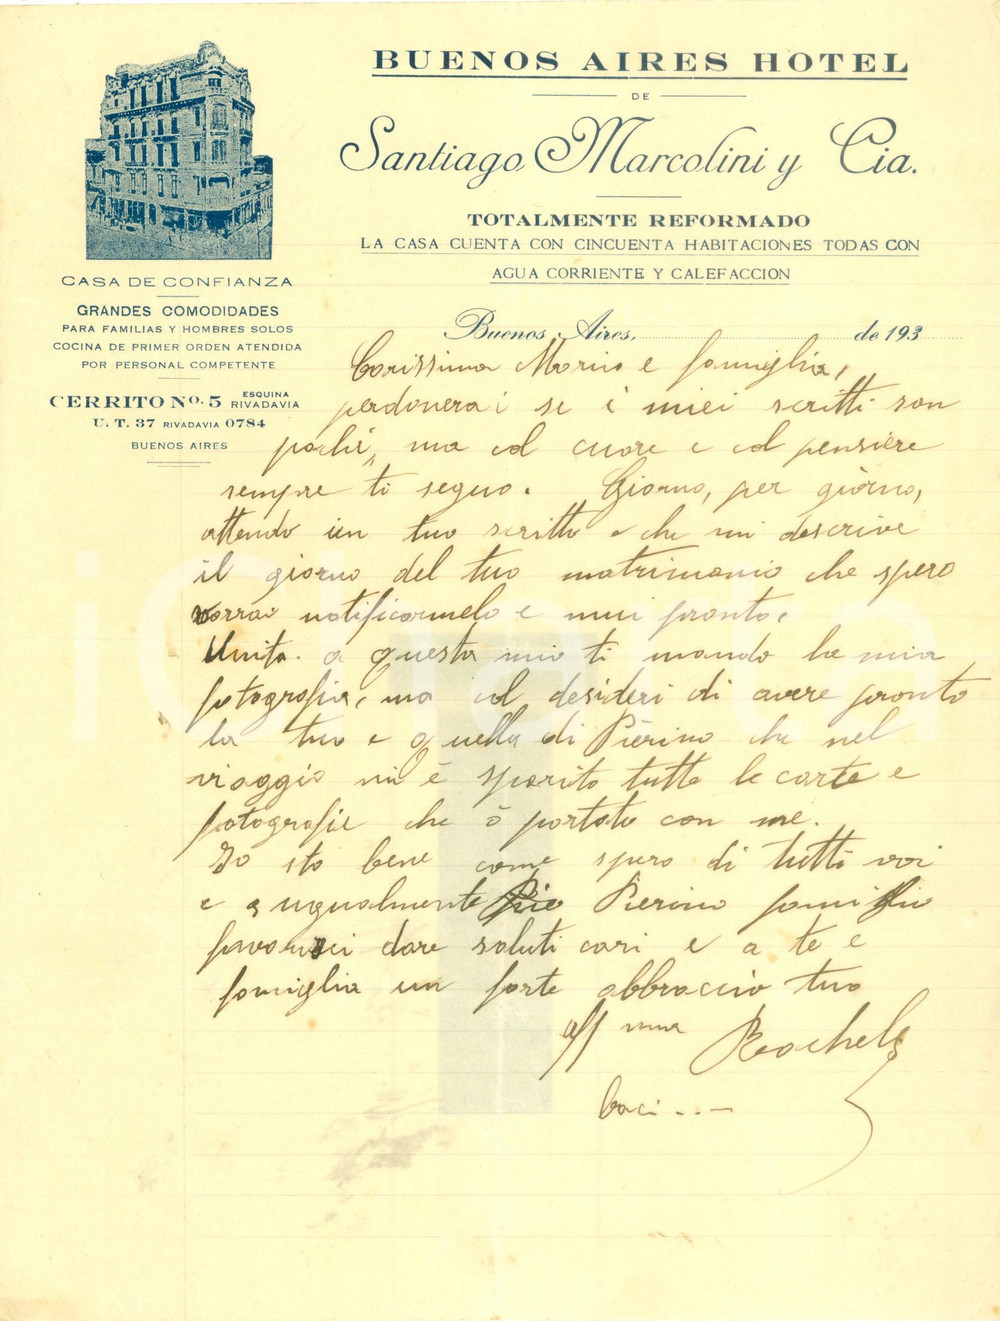 BUENOS AIRES HOTEL
DE
Santiago Marcolini y Cia.
TOTALMENTE REFORMADO
LA CASA CUENTA CON CINCUENTA HABITACIONES TODAS CON
AGUA CORRIENTE Y CALEFACCION
CASA DE CONFIANZA
GRANDES COMODIDADES
PARA FAMILIAS Y HOMBRES SOLOS
COCINA DE PRIMER ORDEN ATENDIDA
POR PERSONAL COMPETENTE
CERRITO No. 5 ESQUINA RIVADAVIA
U. T. 37 RIVADAVIA 0784
BUENOS AIRES
Buenos Aires, de 193
Carissima e famiglia,
perdonerai se i miei scritti son
pochi, ma col cuore e col pensiere
sempre ti seguo. Giorno, per giorno,
attendo un tuo scritto e che mi descrive
il giorno del tuo matrimonio che spero
vorrai notificarmelo e pronto,
Unita a questa mia ti mando la mia
fotografia, ma col desideri di avere pronto
la tua e quella di Pierino che nel
viaggio mi è sparito tutte le carte e
fotografie che ò portato con me.
Io sto bene come spero di tutti voi
e a ugualmente Pierino famiglia
favorisci dare saluti cari e a te e
famiglia un forte abbraccio tuo
aff mma Rachele
baci ...
iCharta